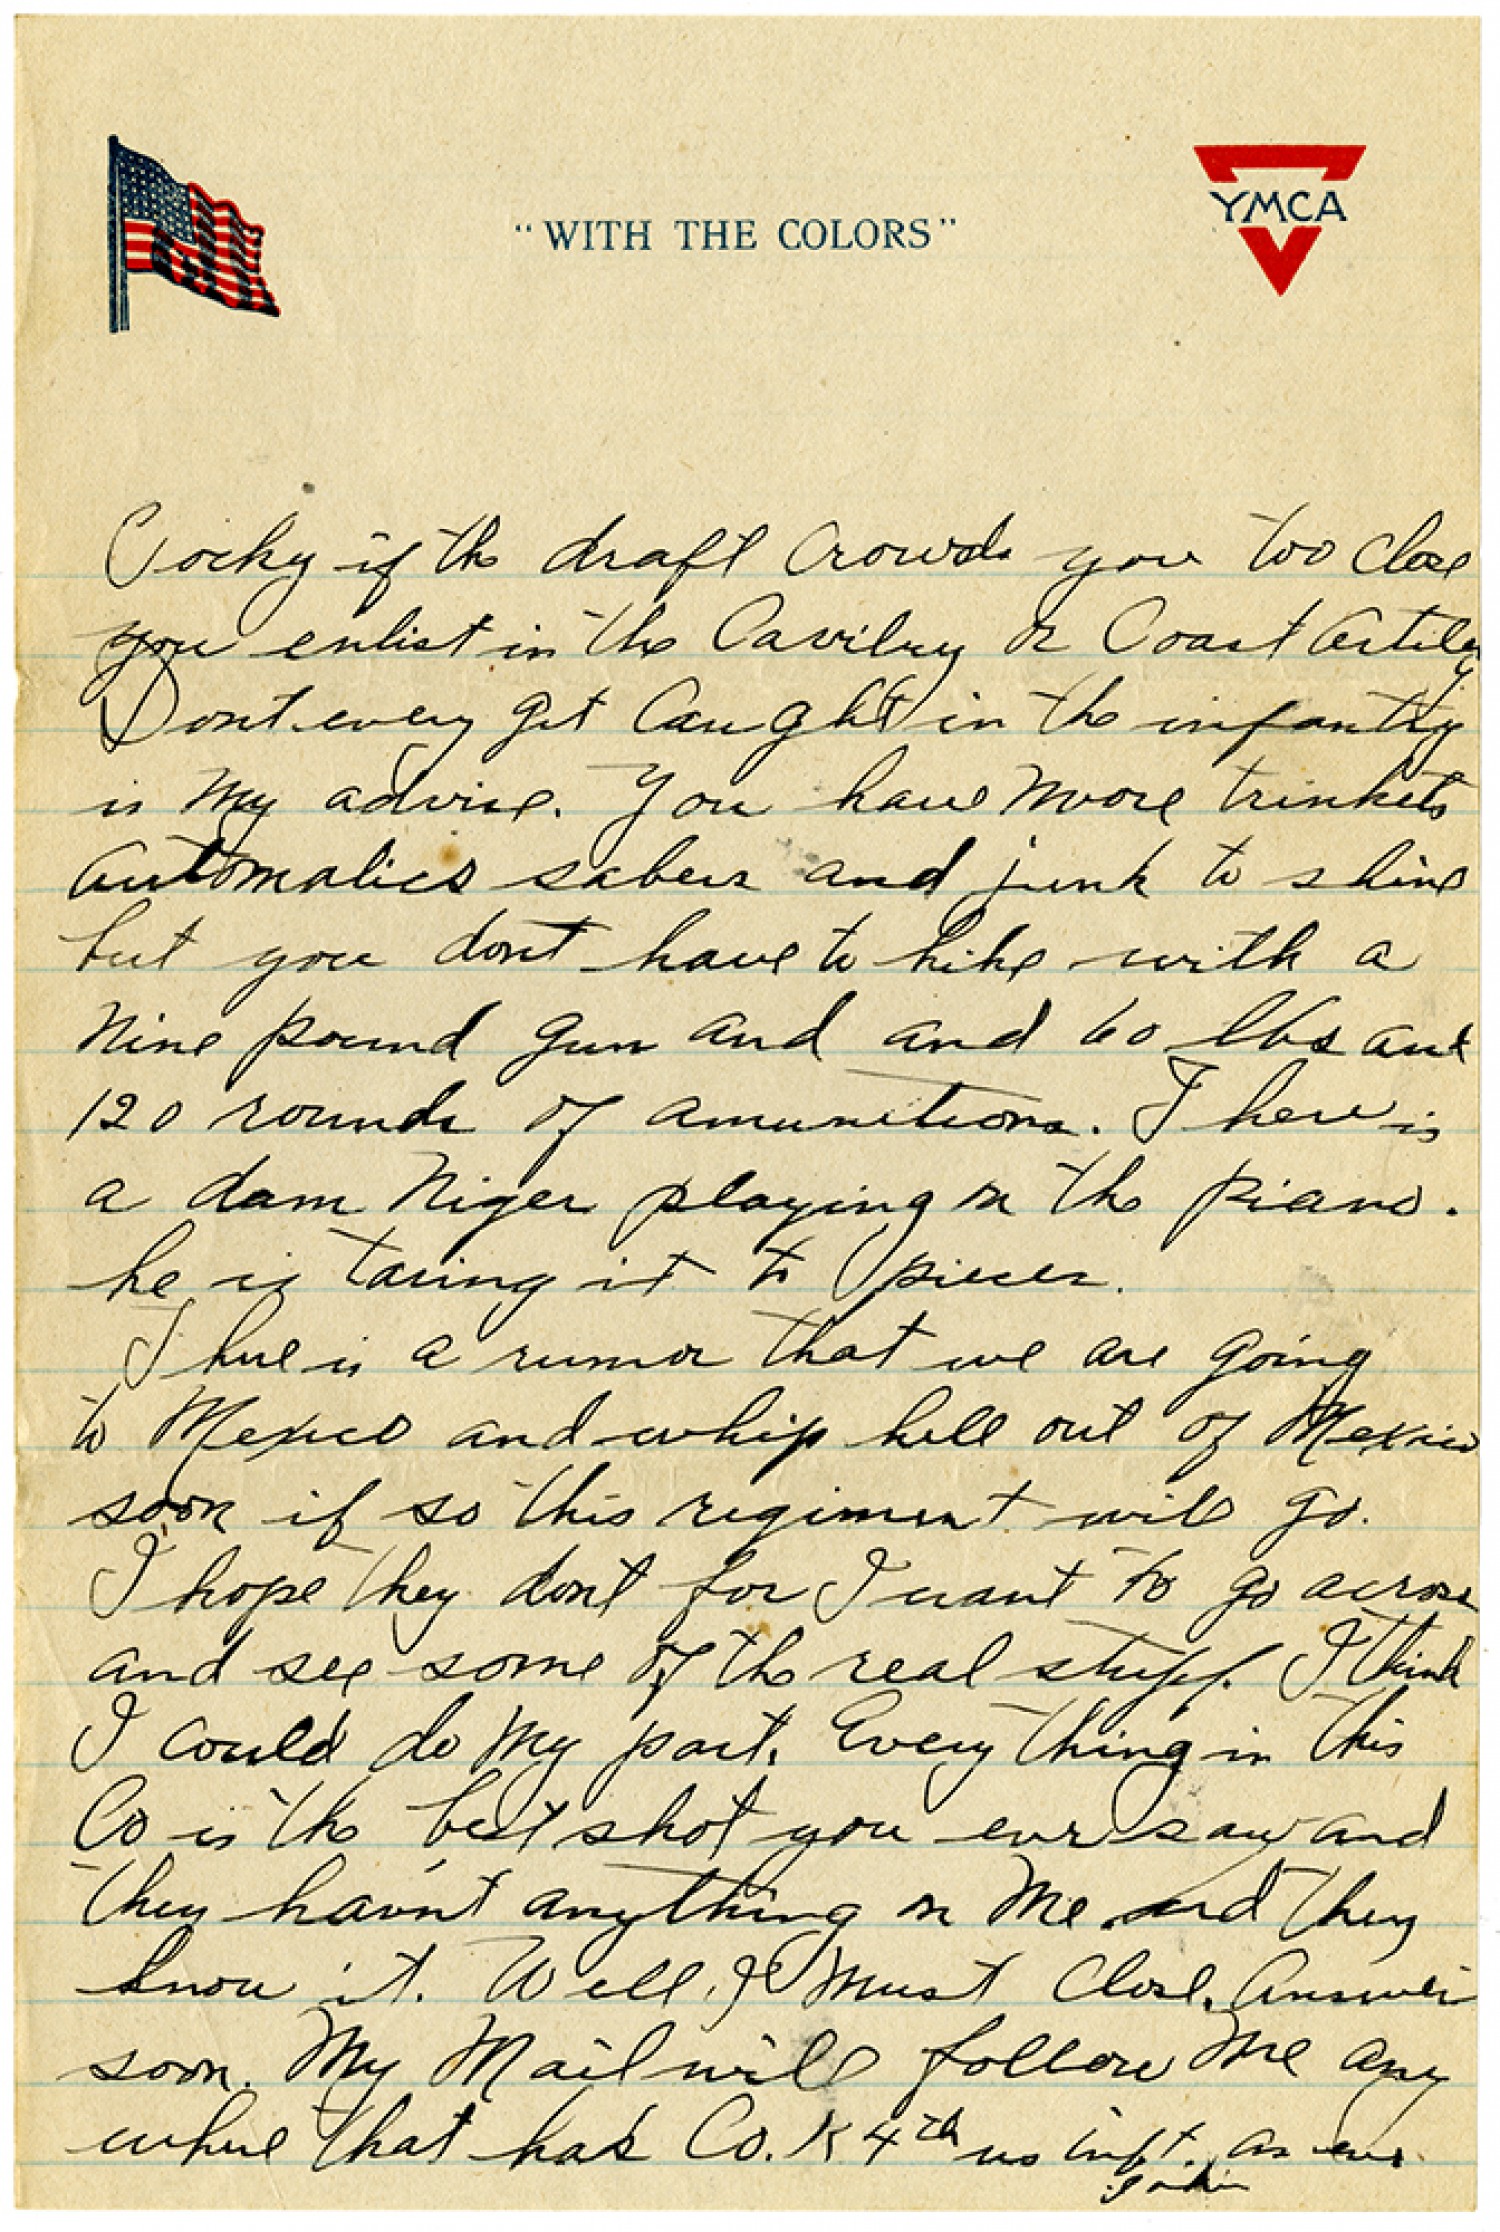 "WITH THE COLORS"
YMCA
Cocky if the draft Crowds you too close
you enlist in the Cavilry or Coast Artilery
Dont every get Caught in the infantry
is my advise. You have more trinkets
automatics sabers and junk to shine
but you dont have to hike with a
Nine pound gun and and 60 lbs and
120 rounds of amunitions. There is
a dam Niger playing on the piano.
he is taring it to pieces.
There is a rumor that we are going
to Mexico and whip hell out of Mexico
soon if so this regiment will go.
I hope they dont for I want to go across
and see some of the real stuff. I think
I could do my part. Everything in this
Co is the best shot you ever saw and
they havnt anything on me and they
know it. Well I must Close. Answer
soon. My Mail will follow me any
where that has Co. K 4th us inft. as ever